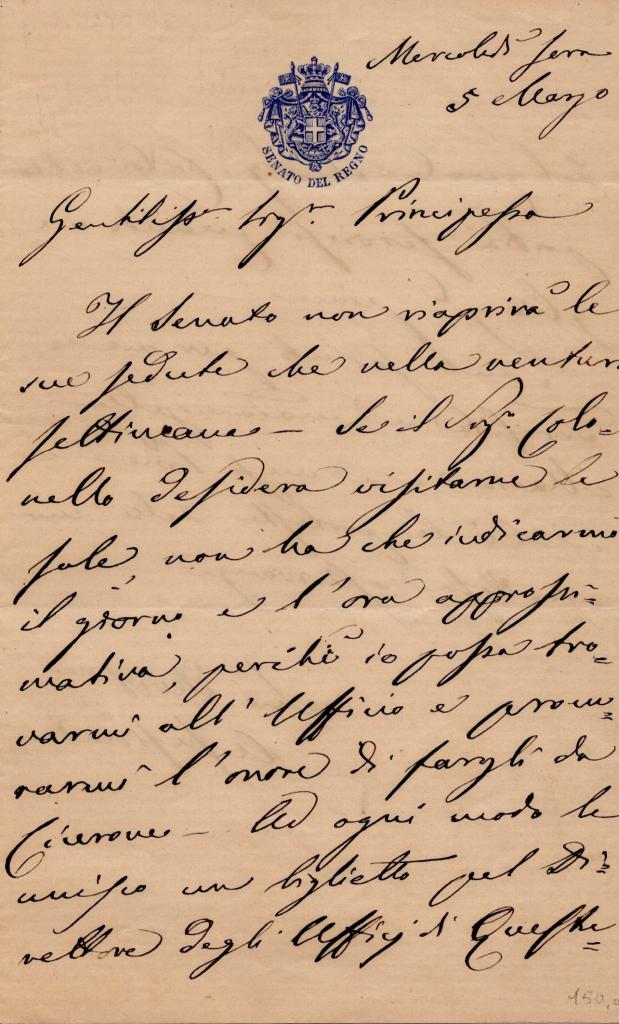 Mercoledì sera
5 Marzo
SENATO DEL REGNO
Gentiliss.ma Sig.ra Principessa
Il Senato non riaprirà le
sue sedute che nella ventura
settimana – Se il Sig.r Colo-
nello desidera visitarne le
sale, non ha che indicarmi
il giorno e l'ora approssi=
mativa, perchè io possa tro-
varmi all'Ufficio e procu-
rarmi l'onore di fargli da
Cicerone – Ad ogni modo le
unisco un biglietto pel Di=
rettore degli Ufficj di Queste=
150,